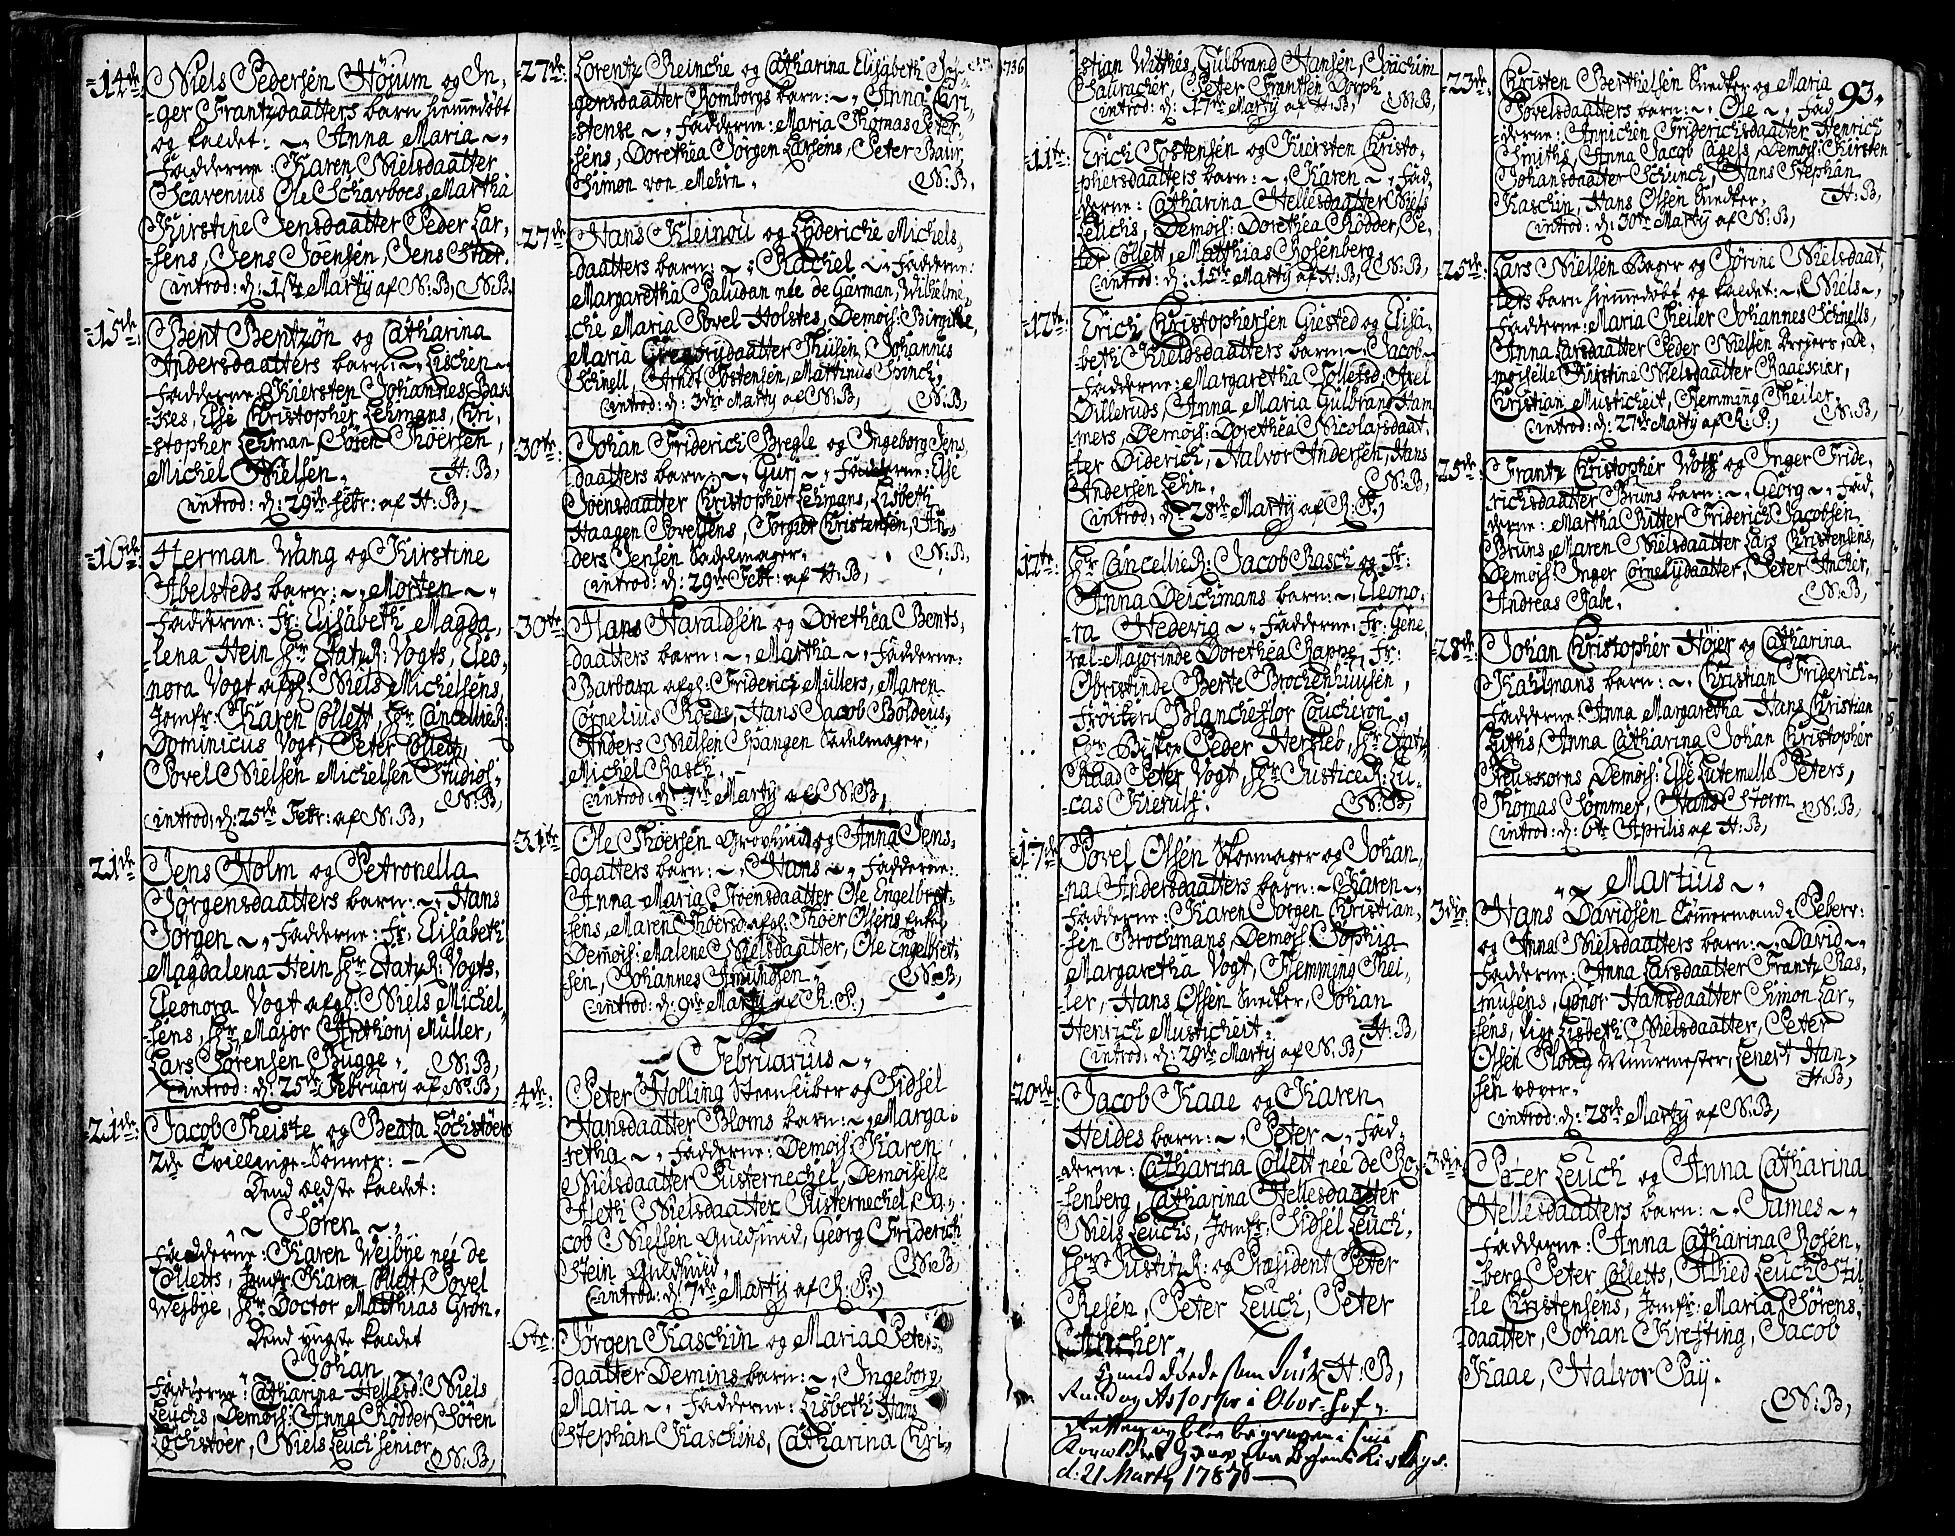 -14de. Niels Pedersen Höjum og In-
-ger Frantzdaatters barn hiemmedöbt
og kaldet: ~ Anna Maria ~
Fadderne: Karen Nielsdaatter
Scavenius Ole Scharboes, Martha
Kirstine Jensdaatter Peder Lar-
-sens, Jens Joensen, Jens
introd: d: 1ste Martÿ af N: B, N: B,
-15de. Bent Bentzön og Catharina
Andersdaatters barn: ~ Lischen ~
Fadderne Kiersten Johannes
Else Christopher Lehmans, Chri-
-stopher Lehman, Sören Thoersen,
Michel Nielsen. H: B,
introd: d: 29de Febr: af H: B,
-16de. Herman Wang og Kirstine
Abelsteds barn: ~ Morten ~
Fadderne: Fr: Elisabeth Magda-
lena Hein Hr. Etatz R: Vogts, Eleo-
nora Vogt afgl: Niels Michelsens,
Jomfr: Karen Collett, Hr. Cancellie R:
Dominicus Vogt, Peter Collett,
Povel Nielsen Michelsen Studios:
N: B,
introd: d: 25de Febr: af N: B,
21de. Jens Holm og Petronella
Jörgensdaatters barn: ~ Hans
Jörgen ~ Fadderne: Fr. Elisabeth
Magdalena Hein Hr. Etatz R: Vogts,
Eleonora Vogt afgl: Niels Michel-
-sens, Hr. Major Anthonj Müller,
Lars Sörensen Bugge, N: B,
introd: d: 25de February af N: B,
-21de. Jacob Theiste og Beata Löchstöers
2de Tvillinge-Sönner: ~
Dend ældste kaldet:
~ Sören ~
Fadderne: Karen Wejbÿe née de
Colletts, Jomfr: Karen Collett, Povel
Wejbÿe, Hr. Doctor Matthias Grön.
Dend ÿngste kaldet
Johan
Fadderne: Catharina Hellesd: Niels
Leuchs, Demois: Anna Rödder, Sören
Löchstöer, Niels Leuch Senior, N: B,
-27de. Lorentz Reinche og Catharina Elisabeth Jör-
-gensdaatter Romborgs barn: ~ Anna Chri-
-stense ~ Fadderne: Maria Thomas Peter-
sens, Dorothea Jörgen Larsens, Peter Baur,
Simon von Mehrn. N: B,
-27de. Hans Kleinou og Lyderiche Michels-
-daatters barn: ~ Rachel ~ Fadderne:
Margaretha Paludan née de Garman, Wilhelmi-
che Maria Povel Holstes, Demois: Birgithe
Maria Gregorÿdaatter Thusen, Johannes
Schnell, Arndt Tostensen, Martinus
introd: d: 3die Martÿ af N: B, N: B,
-30te. Johan Friderich Bregle og Ingeborg Jens-
daatters barn: ~ Guri ~ Fadderne: Else
Joensdaatter Christopher Lehmans, Lisbeth
Haagen Povelsens, Torgier Christensen, An-
ders Jensen Sadelmager. N: B,
introd: d: 29de Febr: af H: B,
-30te. Hans Haraldsen og Dorethea Bents-
daatters barn: ~ Martha ~ Fadderne:
Barbara afgl: Friderich Müllers, Maren
Cornelius Roeds, Hans Jacob Boldeus,
Anders Nielsen Spangen Sadelmager,
Michel Rasch.
introd: d: 7de Martÿ af N: B,
-31te. Ole Thoersen Grovsmid og Anna Jens-
daatters barn: ~ Hans ~ Fadderne:
Anna Maria Joensdaatter Ole Engelbret-
-sens, Maren Thoersd: afgl: Thoer Olsens Enke,
Demois: Malene Nielsdaatter, Ole Engelbret-
sen, Johannes Amundsen ~ N: B,
introd: d: 9de Martÿ af R: P.,
~ Februarius ~
-4de: Peter Holling Steenhuber og Sidsel
Hansdaatter Bloms barn: ~ Marga-
retha ~ Fadderne: Demois: Karen
Nielsdaatter Pusternechel, Demoiselle
Aleth Nielsdaatter Pusternechel, Ja-
cob Nielsen Guldsmid, Georg Friderich
Stein Guldsmid, N: B,
introd: d: 7de Martÿ af R: P.,
-6te: Jörgen Kaschin og Maria Peters-
daatter Demins barn: ~ Ingeborg
Maria ~ Fadderne: Lisbeth Hans
Stephan Kaschins, Catharina Chri-
1736
stian Withes, Gulbrand Hansen, Joachim
Salvracher, Peter Frantzen Dorph
introd: d: 17de Martÿ af H: B, N: B,
-11te: Erich Tostensen og Kiersten Christo-
phersdaatters barn: ~ Karen ~ Fad-
derne: Catharina Hellesdaatter Niels
Leuchs, Demois: Dorethea Rödder, Pe-
ter Collett, Matthias Rosenberg
introd: d: 15de Martÿ af H: B, N: B,
-12te: Erich Christophersen Giested og Elisa-
beth Kieldsdaatters barn: ~ Jacob ~
Fadderne: Margaretha Tollefsd: Axel
Dilleruds, Anna Maria Gulbrand Ham-
mers, Demois: Dorethea Nicolarsdaat-
ter Diderich, Halvor Andersen, Hans
Andersen Lehn. N: B,
introd: d: 28de Martÿ af R: P.,
12te: Hr Cancellie R: Jacob Rasch og Fr:
Anna Deichmans barn: ~ Eleono-
ra Hedevig ~ Fadderne: Fr: Gene-
ral-Majorinde Dorethea Rappe, Fr:
Obristinde Berte Brochenhuusen,
Fröiken Blancheflor Coucheron,
Hr. Biskop Peder Hersleb, Hr. Etatz
Raad Peter Vogt, Hr. Justice R: Lu-
cas Kierulf. N: B,
-17de Povel Olsen Skoemager og Johan-
na Andersdaatters barn: ~ Karen ~
Fadderne: Karen Jörgen Christian-
sen Brochmans, Demois: Sophia
Margaretha Vogt, Flemming Thei-
ler, Hans Olsen Snedker, Johan
Henrich Musticheit. H: B,
introd: d: 29de Martÿ af N: B,
-20de. Jacob Kaae og Karen
Heides barn: ~ Peter ~ Fad-
derne: Catharina Collett née de Ro-
senberg, Catharina Hellesdaatter
Niels Leuchs, Jomfr: Sidsel Leuch,
Hr. Justitz R: og Præsident Peter
Resen, Peter Leuch, Peter
Ancher. H: B,
hand döde som Justz
Raad og Assessor i Over-Hof-
Retten og blev begraven i sin
d: 21 Martÿ 1787
93.
-23de: Christen Berthelsen Snedker og Maria
Povelsdaatters barn: ~ Ole ~ Fad-
derne: Annichen Friderichsdaatter Henrich
Smiths, Anna Jacob Cagels, Demois: Kirsten
Johansdaatter Schunch, Hans Stephan
Kaschin, Hans Olsen Snedker, H: B,
introd: d: 30te Martÿ af N: B,
-25de. Lars Nielsen Bager og Jörine Nielsdaat-
ters barn hiemmedöbt og kaldet: ~ Niels ~
Fadderne: Maria Theiler Johannes Schnells,
Anna Larsdaatter Peder Nielsen Brejers, De-
moiselle Kirstine Nielsdaatter
Christian Musticheit, Flemming Theiler,
introd: d: 27de Martÿ af R: P., N: B,
25de. Frantz Christopher Wolf og Inger Fride-
richsdaatter Bruns barn: ~ Georg ~ Fad-
derne: Martha Ritter Friderich Jacobsen
Bruns, Maren Nielsdaatter Lars Christensens,
Demois: Inger Cornelÿdaatter, Peter Ancher,
Andreas Rabe. N: B,
-28de Johan Christopher Höjer og Catharina
Kahlmans barn: ~ Christian Friderich ~
Fadderne: Anna Margaretha Hans Christian
Luths, Anna Catharina Johan Christopher
Demois: Else Lutemelle Peters,
Thomas Sommer, Hans Storm N: B,
introd: d: 6te Aprilis af H: B,
~ Martius ~
3die: Hans Davidsen Tömmermand
og Anna Nielsdaatters barn: ~ David ~
Fadderne: Anna Larsdaatter Frantz Ras-
musens, Gonor Hansdaatter Simon Lar-
-sens, Lisbeth Nielsdaatter, Peter
Olsen Ploug Muurmester, Lenert Han-
sen væver. H: B,
introd: d: 28de Martÿ af N: B,
3die. Peter Leuch og Anna Catharina
Hellesdaatters barn: ~ James ~
Fadderne: Anna Catharina Rosen-
-berg Peter Colletts, Leuch
Christensens, Jomfr: Maria Sörens-
daatter, Johan Krefting, Jacob
Kaae, Halvor Paÿ.
N: B,